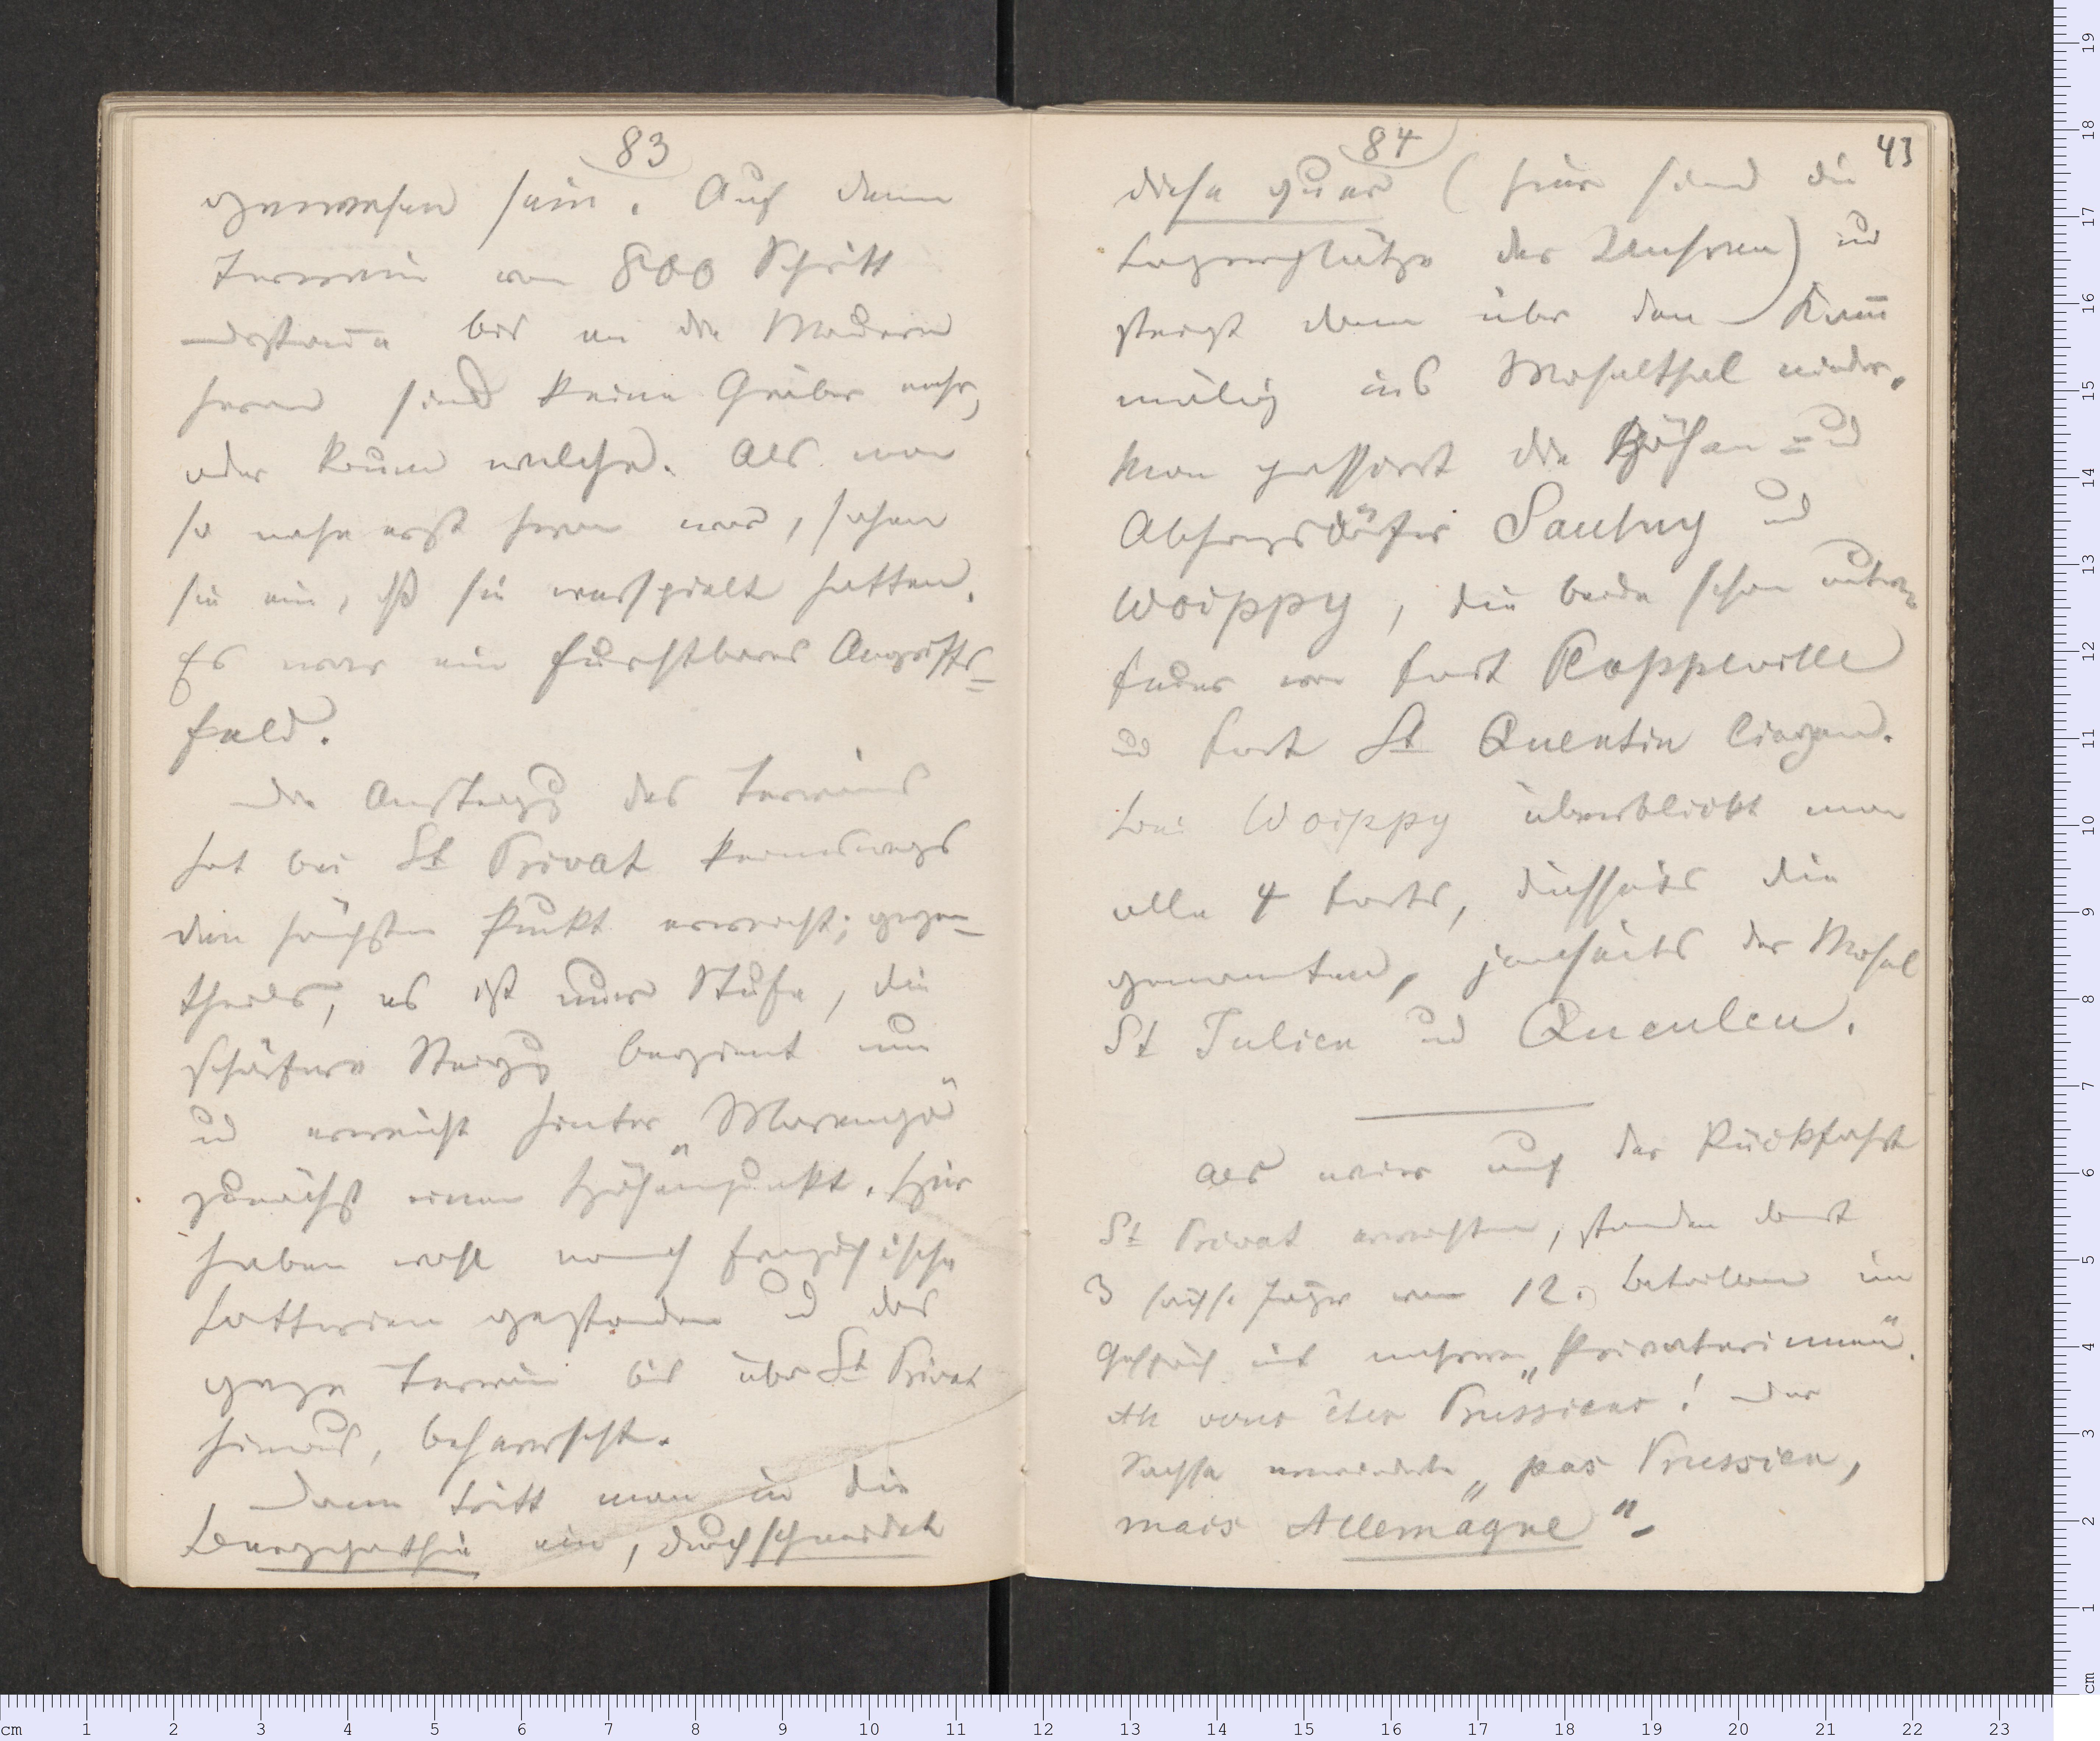 83
gewesen sein. Auf dem
Terrain von 800 Schritt
Distance bis an die Mauern
heran sind keine Gräber mehr,
oder kaum welche. Als man
so nahe erst heran war, sahen
sie ein, dß sie verspielt hatten.
Es war ein furchtbares Angriffs=
feld.
Die Ansteigg des Terrains
hat bei St Privat keineswegs
den höchsten Punkt erreicht; gegen-
theils, es ist nur Stufe, die
schärfere Steigg beginnt nun
und erreicht hinter „Marengo"
zunächst einen Höhenpunkt. Hier
haben wohl noch französische
Batterien gestanden und das
ganze Terrain bis über St Privat
hinaus, beherrscht.
Dann tritt man in die
Bergparthie ein, durchschneidet
84
43
diese quer (hier sind die
Lagerplätze der Unsren) und
steigt dann über den Kamm
mälig ins Moselthal nieder.
Man passirt die Höhen= und
Abhangsdörfer Saulny und
Woippy, die beide schon unterm
Feuer von Fort Plappeville
und Fort St Quentin liegen.
Bei Woippy überblickt man
alle 4 Forts, diesseits die
genannten, jenseits der Mosel
St Julien und Queuleu.
Als wir auf der Rückfahrt
St Privat erreichten, standen dort
3 sächs. Jäger vom 12. Bataillon im
Gespräch mit mehren „Privaterinnen".
Ah vous êtes Prussiens! Der
Sachse erwiderte „pas Prussien,
mais Allemagne".